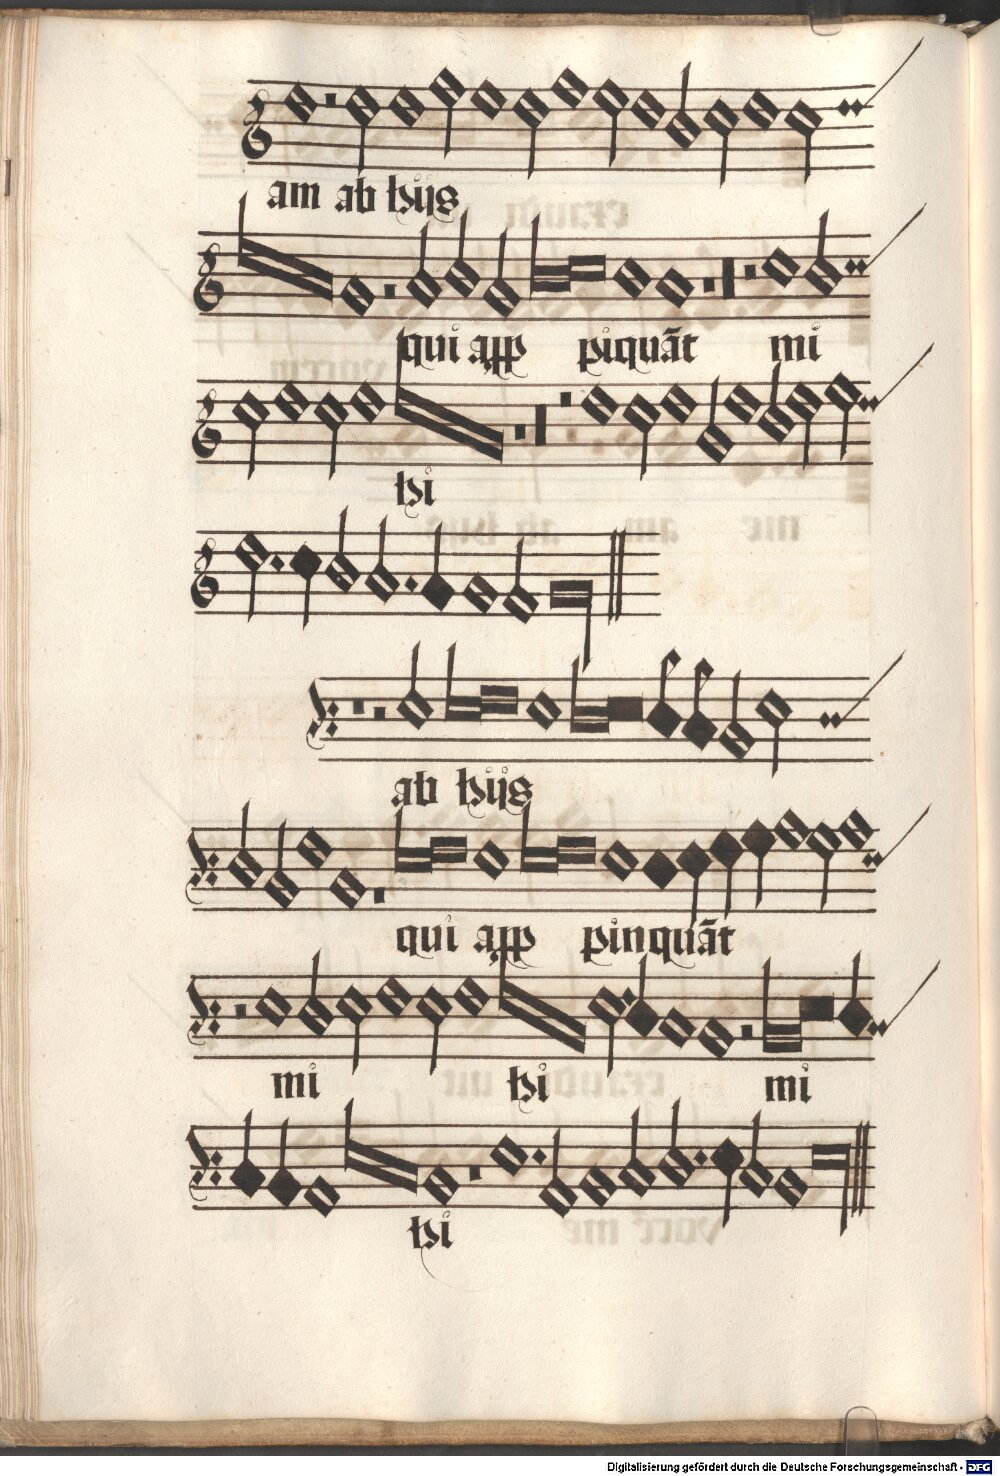 am ab hijs
qui app piquāt mi
hi
ab hijs
qui app pinquāt
mi hi mi
hi
Digitalisierung gefördert durch die Deutsche Forschungsgemeinschaft - DFG